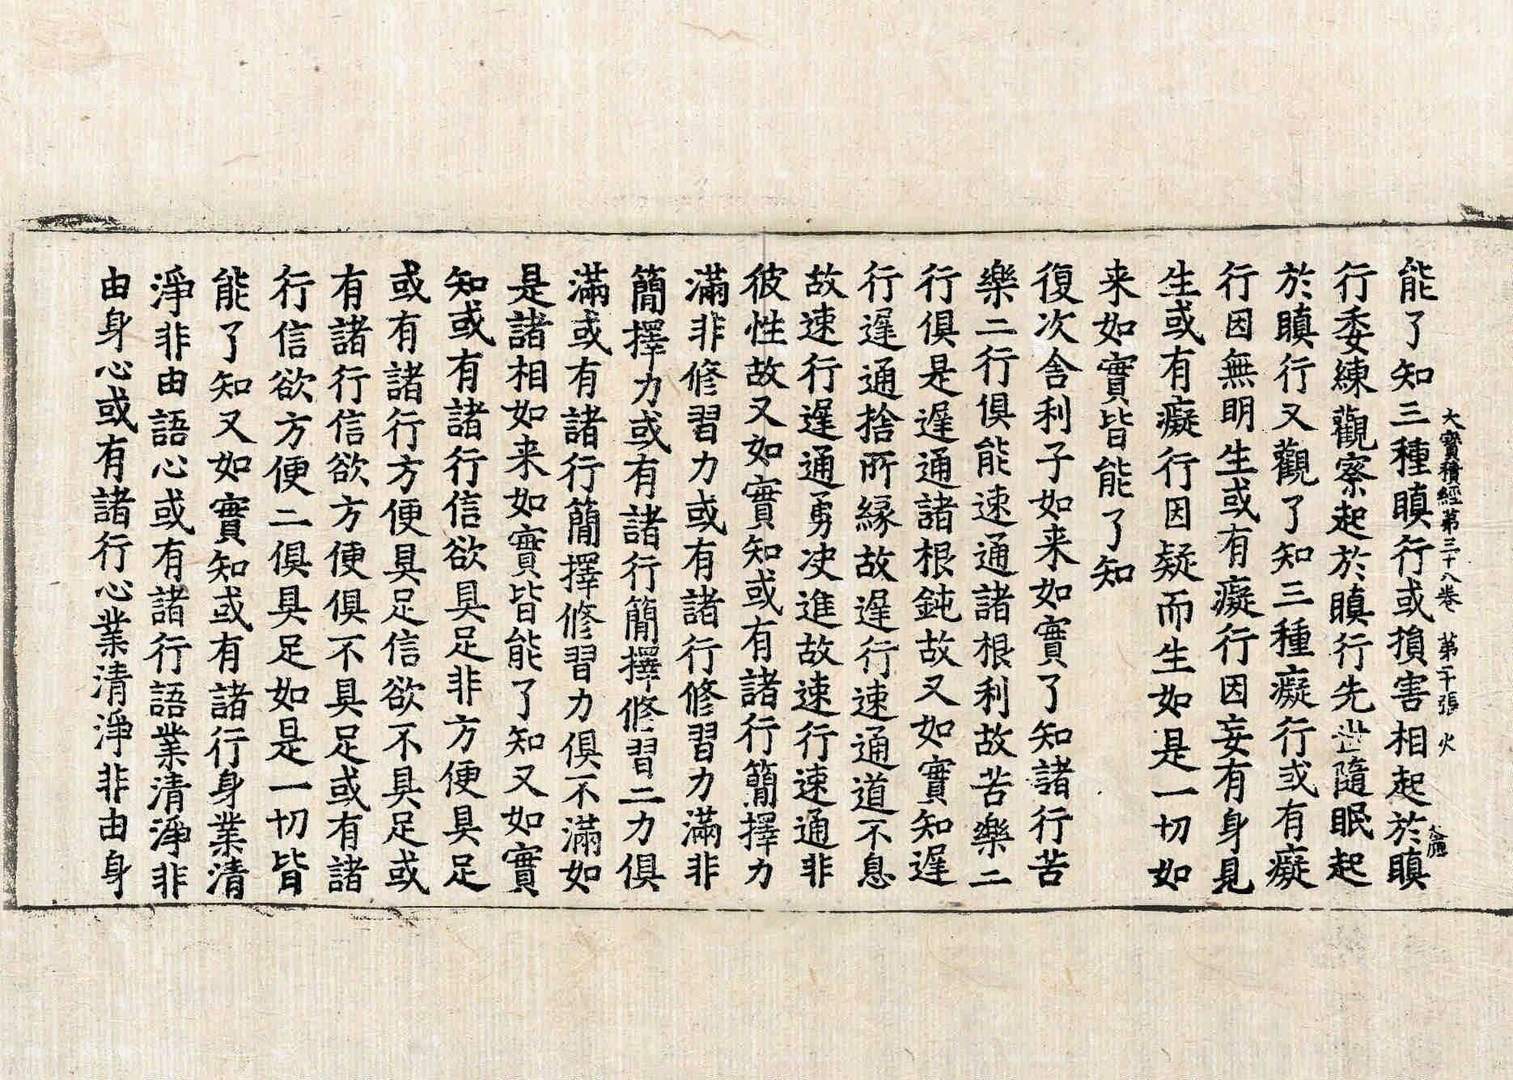 大寶積經第三十八卷 第二十張 火
能了知三種瞋行或損害相起於瞋
行委練觀察起於瞋行先世隨眠起
於瞋行又觀了知三種癡行或有癡
行因無明生或有癡行因妄有身見
生或有癡行因疑而生如是一切如
来如實皆能了知
復次舍利子如来如實了知諸行苦
樂二行俱能速通諸根利故苦樂二
行俱是遲通諸根鈍故又如實知遲
行遲通捨所緣故遲行速通道不息
故速行遲通勇决進故速行速通非
彼性故又如實知或有諸行簡擇力
滿非修習力或有諸行修習力滿非
簡擇力或有諸行簡擇修習二力俱
滿或有諸行簡擇修習力俱不滿如
是諸相如来如實皆能了知又如實
知或有諸行信欲具足非方便具足
或有諸行方便具足信欲不具足或
有諸行信欲方便俱不具足或有諸
行信欲方便二俱具足如是一切皆
能了知又如實知或有諸行身業清
淨非由語心或有諸行語業清淨非
由身心或有諸行心業清淨非由身